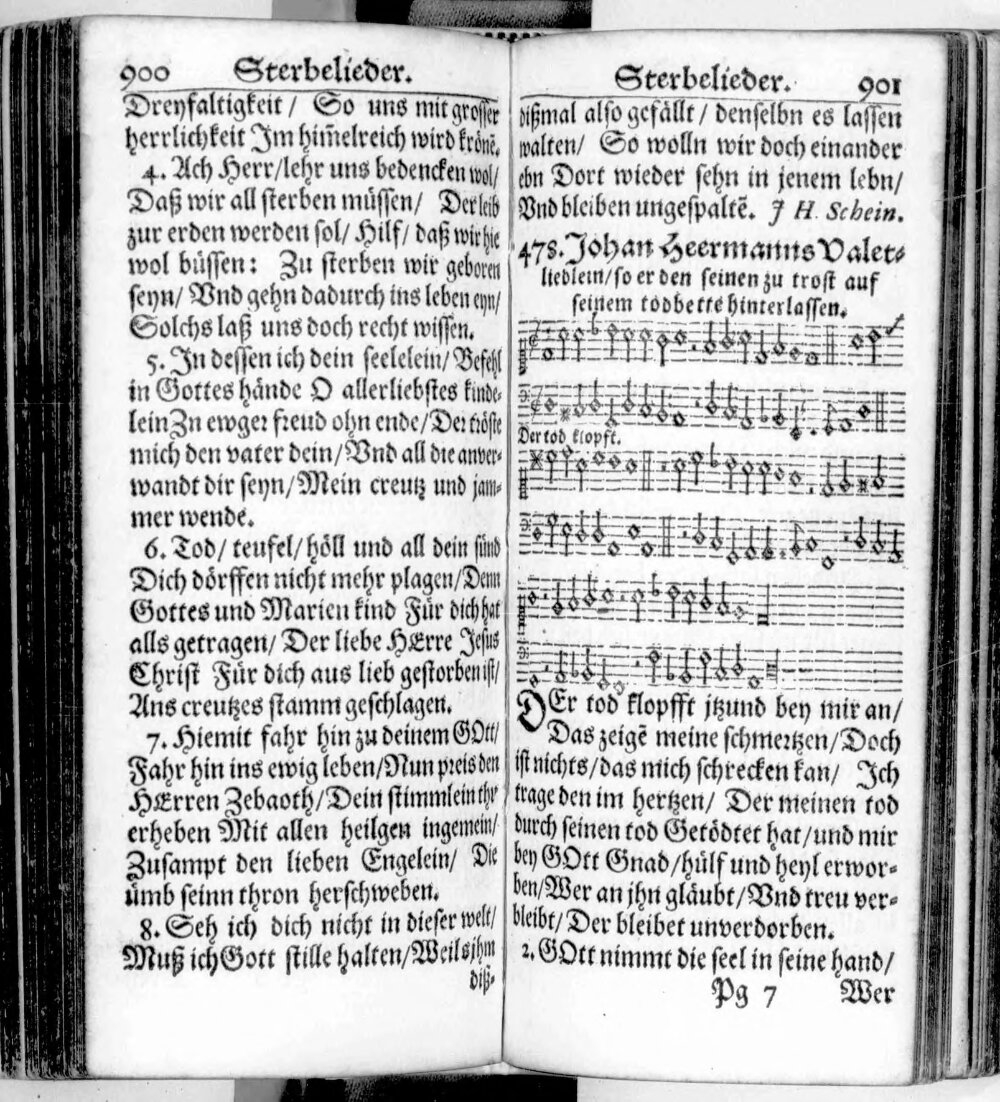 900 Sterbelieder.
Dreyfaltigkeit / So uns mit grosser
herrlichkeit Im him̃elreich wird krönẽ.
4. Ach Herr/lehr uns bedencken wol/
Daß wir all sterben müssen/ Der leib
zur erden werden sol/ Hilf/ daß wir hie
wol büssen: Zu sterben wir geboren
seyn/ Vnd gehn dadurch ins leben eyn/
Solchs laß uns doch recht wissen.
5. In dessen ich dein seelelein/ Befehl
in Gottes hände O allerliebstes kinde-
lein Zn ewger freud ohn ende/Der tröste
mich den vater dein/Vnd all die anver-
wandt dir seyn/Mein creutz und jam-
mer wende.
6. Tod/ teufel/höll und all dein sünd
Dich dörffen nicht mehr plagen/Denn
Gottes und Marien kind Für dich hat
alls getragen/ Der liebe HErre Jesus
Christ Für dich aus lieb gestorben ist/
Ans creutzes stamm geschlagen.
7. Hiemit fahr hin zu deinem GOtt/
Fahr hin ins ewig leben/Nun preis den
HErren Zebaoth/Dein stimmlein thr
erheben Mit allen heilgen ingemein/
Zusampt den lieben Engelein/ Die
ümb seinn thron herschweben.
8. Seh ich dich nicht in dieser welt/
Muß ich Gott stille halten/Weils jhm
diß-
Sterbelieder. 901
dißmal also gefällt/ denselbn es lassen
walten/ So wolln wir doch einander
ebn Dort wieder sehn in jenem lebn/
Vnd bleiben ungespaltẽ. J H. Schein.
478. Johan Heermanns Valet-
liedlein/so er den seinen zu trost auf
seinem todbette hinterlassen.
Der tod klopft.
DEr tod klopfft jtzund bey mir an/
Das zeigẽ meine schmertzen/Doch
ist nichts/das mich schrecken kan/ Ich
trage den im hertzen/ Der meinen tod
durch seinen tod Getödtet hat/und mir
bey GOtt Gnad/hülf und heyl erwor-
ben/Wer an jhn gläubt/Vnd treu ver-
bleibt/Der bleibet unverdorben.
2. GOtt nimmt die seel in seine hand/
Pg 7 Wer